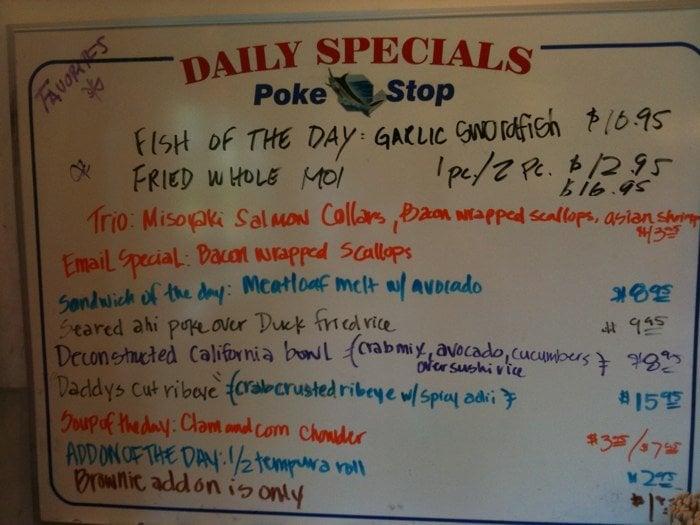 FAVORITES *
DAILY SPECIALS
Poke Stop
FISH OF THE DAY: GARLIC SWORDFISH $10.95
FRIED WHOLE MOI 1pc./2 pc. $12.95
$16.95
Trio: Misoyaki Salmon Collars, Bacon wrapped scallops, asian shrimp
$13.95
Email Special: Bacon wrapped Scallops
Sandwich of the day: Meatloaf melt w/ avocado $8.95
Seared ahi poke over Duck fried rice $9.95
Deconstructed California bowl {crab mix, avocado, cucumbers } $8.95
over sushi rice
Daddys cut ribeye" {crab crusted ribeye w/ spicy ahi } $15.95
Soup of the day: Clam and corn Chowder $3.25/$7.25
ADD ON OF THE DAY: 1/2 tempura roll $2.95
Brownie add on is only